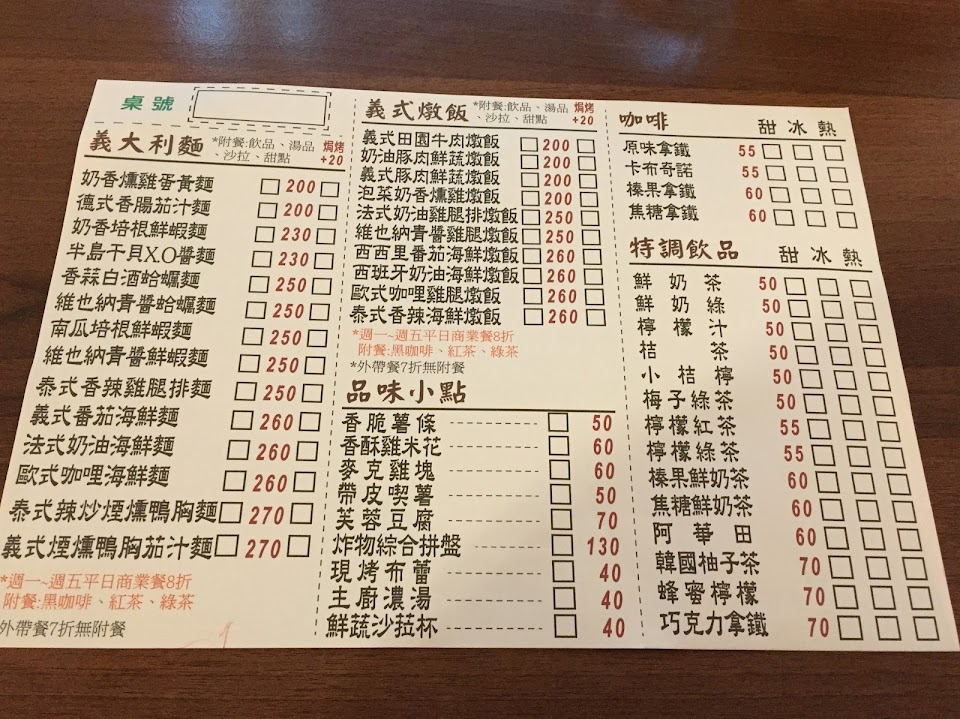 桌號
義大利麵 *附餐:飲品、湯品、沙拉、甜點 焗烤+20
奶香燻雞蛋黃麵 200
德式香腸茄汁麵 200
奶香培根鮮蝦麵 230
半島干貝X.O醬麵 230
香蒜白酒蛤蠣麵 250
維也納青醬蛤蠣麵 250
南瓜培根鮮蝦麵 250
維也納青醬鮮蝦麵 250
泰式香辣雞腿排麵 250
義式番茄海鮮麵 260
法式奶油海鮮麵 260
歐式咖哩海鮮麵 260
泰式辣炒煙燻鴨胸麵 270
義式煙燻鴨胸茄汁麵 270
*週一~週五平日商業餐8折
附餐:黑咖啡、紅茶、綠茶
外帶餐7折無附餐
義式燉飯 *附餐:飲品、湯品、沙拉、甜點 焗烤+20
義式田園牛肉燉飯 200
奶油豚肉鮮蔬燉飯 200
義式豚肉鮮蔬燉飯 200
泡菜奶香燻雞燉飯 200
法式奶油雞腿排燉飯 250
維也納青醬雞腿燉飯 250
西西里番茄海鮮燉飯 260
西班牙奶油海鮮燉飯 260
歐式咖哩雞腿燉飯 260
泰式香辣海鮮燉飯 260
*週一~週五平日商業餐8折
附餐:黑咖啡、紅茶、綠茶
*外帶餐7折無附餐
品味小點
香脆薯條 50
香酥雞米花 60
麥克雞塊 60
帶皮喫薯 50
芙蓉豆腐 70
炸物綜合拼盤 130
現烤布蕾 40
主廚濃湯 40
鮮蔬沙菈杯 40
咖啡 甜 冰 熱
原味拿鐵 55
卡布奇諾 55
榛果拿鐵 60
焦糖拿鐵 60
特調飲品 甜 冰 熱
鮮奶茶 50
鮮奶綠 50
檸檬汁 50
桔茶 50
小桔檸 50
梅子綠茶 50
檸檬紅茶 55
檸檬綠茶 55
榛果鮮奶茶 60
焦糖鮮奶茶 60
阿華田 60
韓國柚子茶 70
蜂蜜檸檬 70
巧克力拿鐵 70